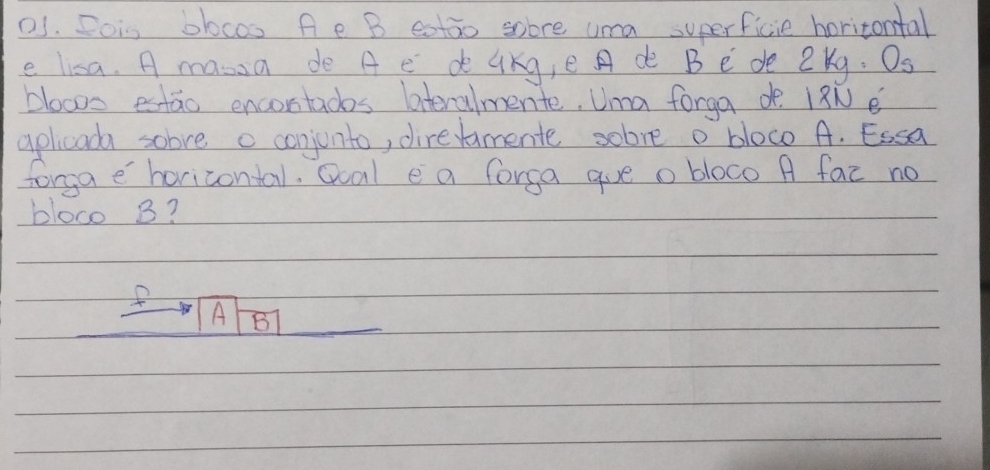 01. Dois blocos A e B estão sobre uma superfície horizontal
e lisa. A massa de A é de 4Kg, e A de B é de 2Kg. Os
blocos estão encostados lateralmente. Uma força de 18N é
aplicada sobre o conjunto, diretamente sobre o bloco A. Essa
força é horizontal. Qual é a força que o bloco A faz no
bloco B?
F
A B